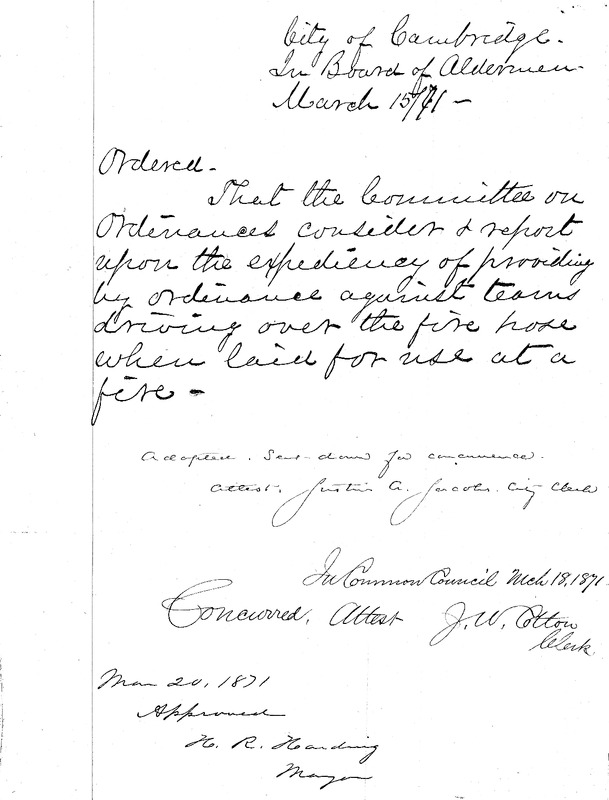 City of Cambridge.
In Board of Aldermen.
March 15/71 -
Ordered -
That the Committee on
Ordinances consider & report
upon the expediency of providing
by ordinance against teams
driving over the fire hose
when laid for use at a
fire -
Adopted. Sent down for concurrence.
Attest, Justin A. Jacobs. City Clerk
In Common Council Mch 18, 1871.
Concurred, Attest J. W. Cotton
Clerk
Mar 20, 1871
Approved
H. R. Harding
Mayor